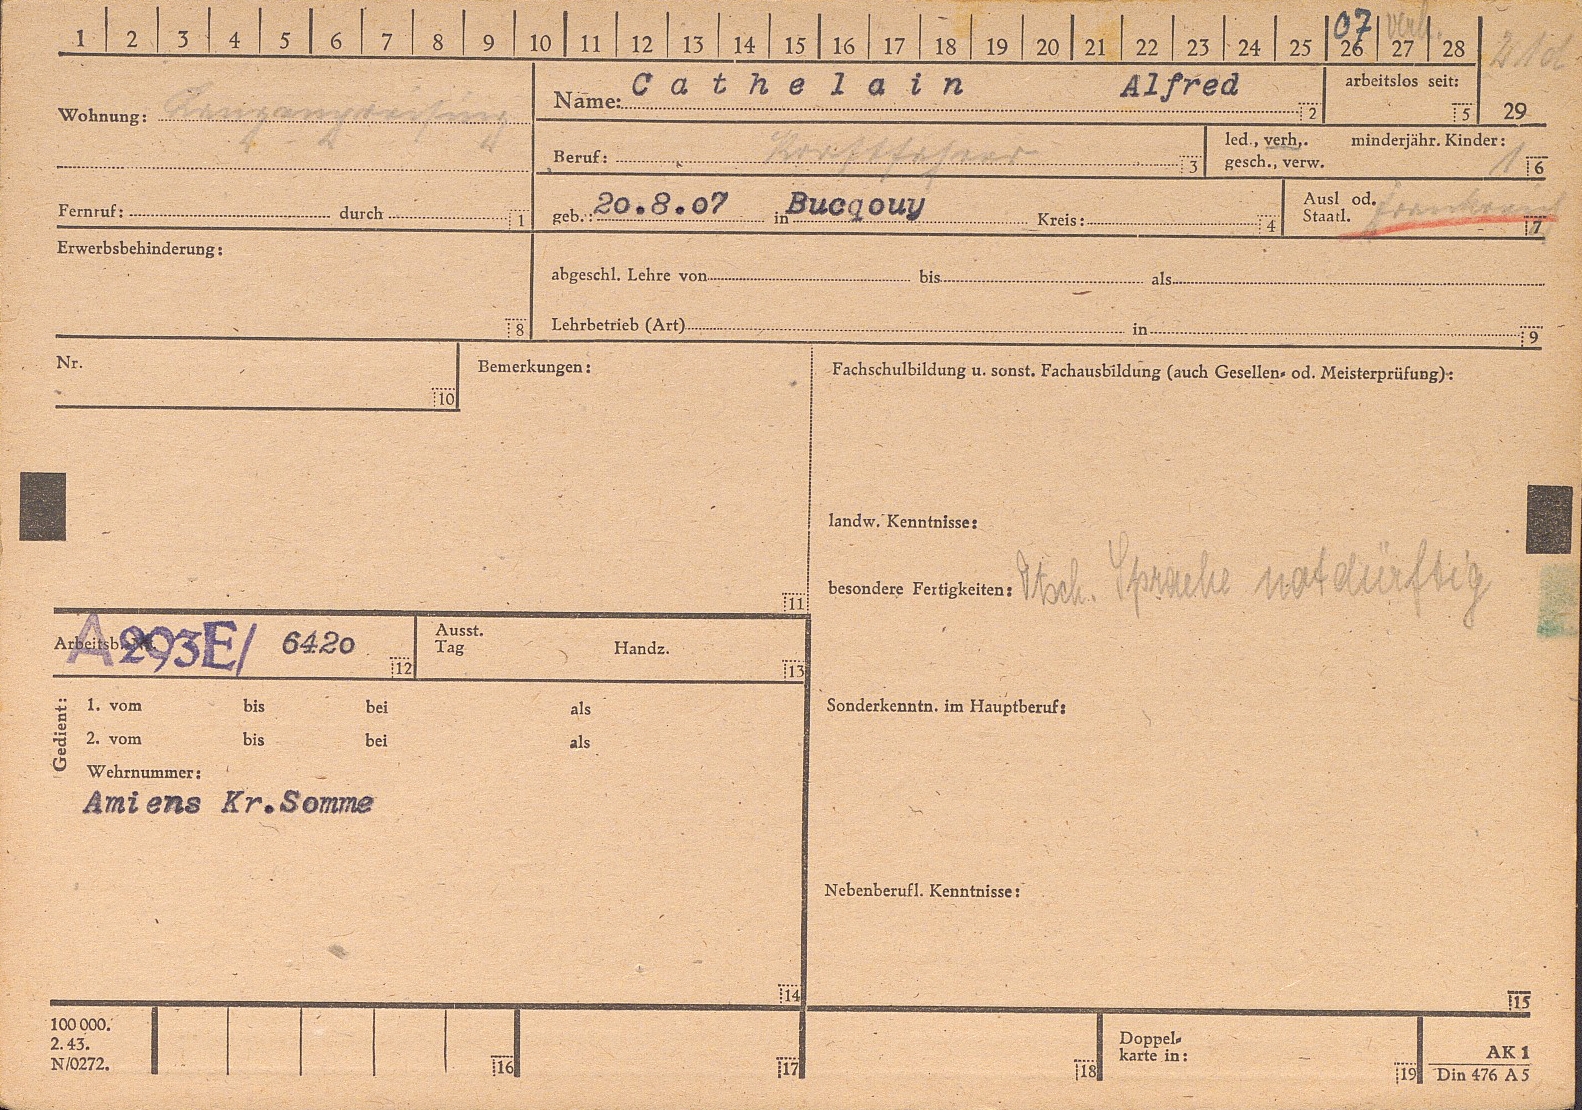 1 2 3 4 5 6 7 8 9 10 11 12 13 14 15 16 17 18 19 20 21 22 23 24 25 26 27 28
07 verh.
21d
Wohnung: Langenpreising
Name: Cathelain Alfred 2
arbeitslos seit: 5
29
Beruf: Kraftfahrer 3
led., verh., minderjähr. Kinder:
gesch., verw. 1 6
Fernruf: durch 1
geb.: 20.8.07 in Bucqouy Kreis: 4
Ausl od.
Staatl. Frankreich 7
Erwerbsbehinderung:
8
abgeschl. Lehre von bis als
Lehrbetrieb (Art) in 9
Nr.
10
Bemerkungen:
11
Fachschulbildung u. sonst. Fachausbildung (auch Gesellen- od. Meisterprüfung):
landw. Kenntnisse:
besondere Fertigkeiten: Dtsch. Sprache notdürftig
Arbeitsb. A 293E/ 6420 12
Ausst.
Tag Handz.
13
Sonderkenntn. im Hauptberuf:
Gedient:
1. vom bis bei als
2. vom bis bei als
Wehrnummer:
Amiens Kr.Somme
14
Nebenberufl. Kenntnisse:
15
100 000.
2. 43.
N/0272.
16
17
18
Doppel-
karte in:
19
AK 1
Din 476 A 5